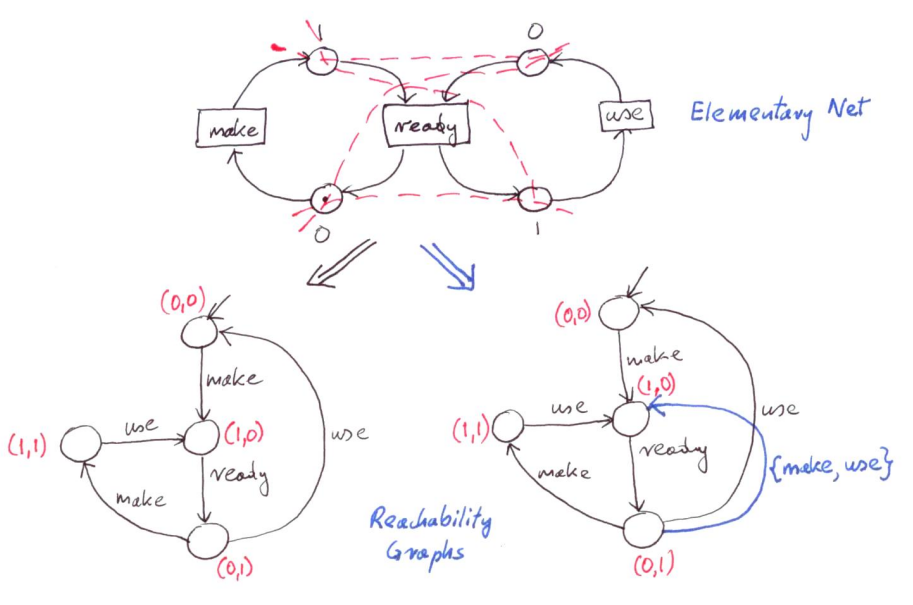 1
0
make
ready
use
Elementary Net
0
1
(0,0)
make
use
(1,1)
(1,0)
use
ready
make
(0,1)
Reachability
Graphs
(0,0)
make
(1,0)
use
use
(1,1)
ready
make
{make, use}
(0,1)